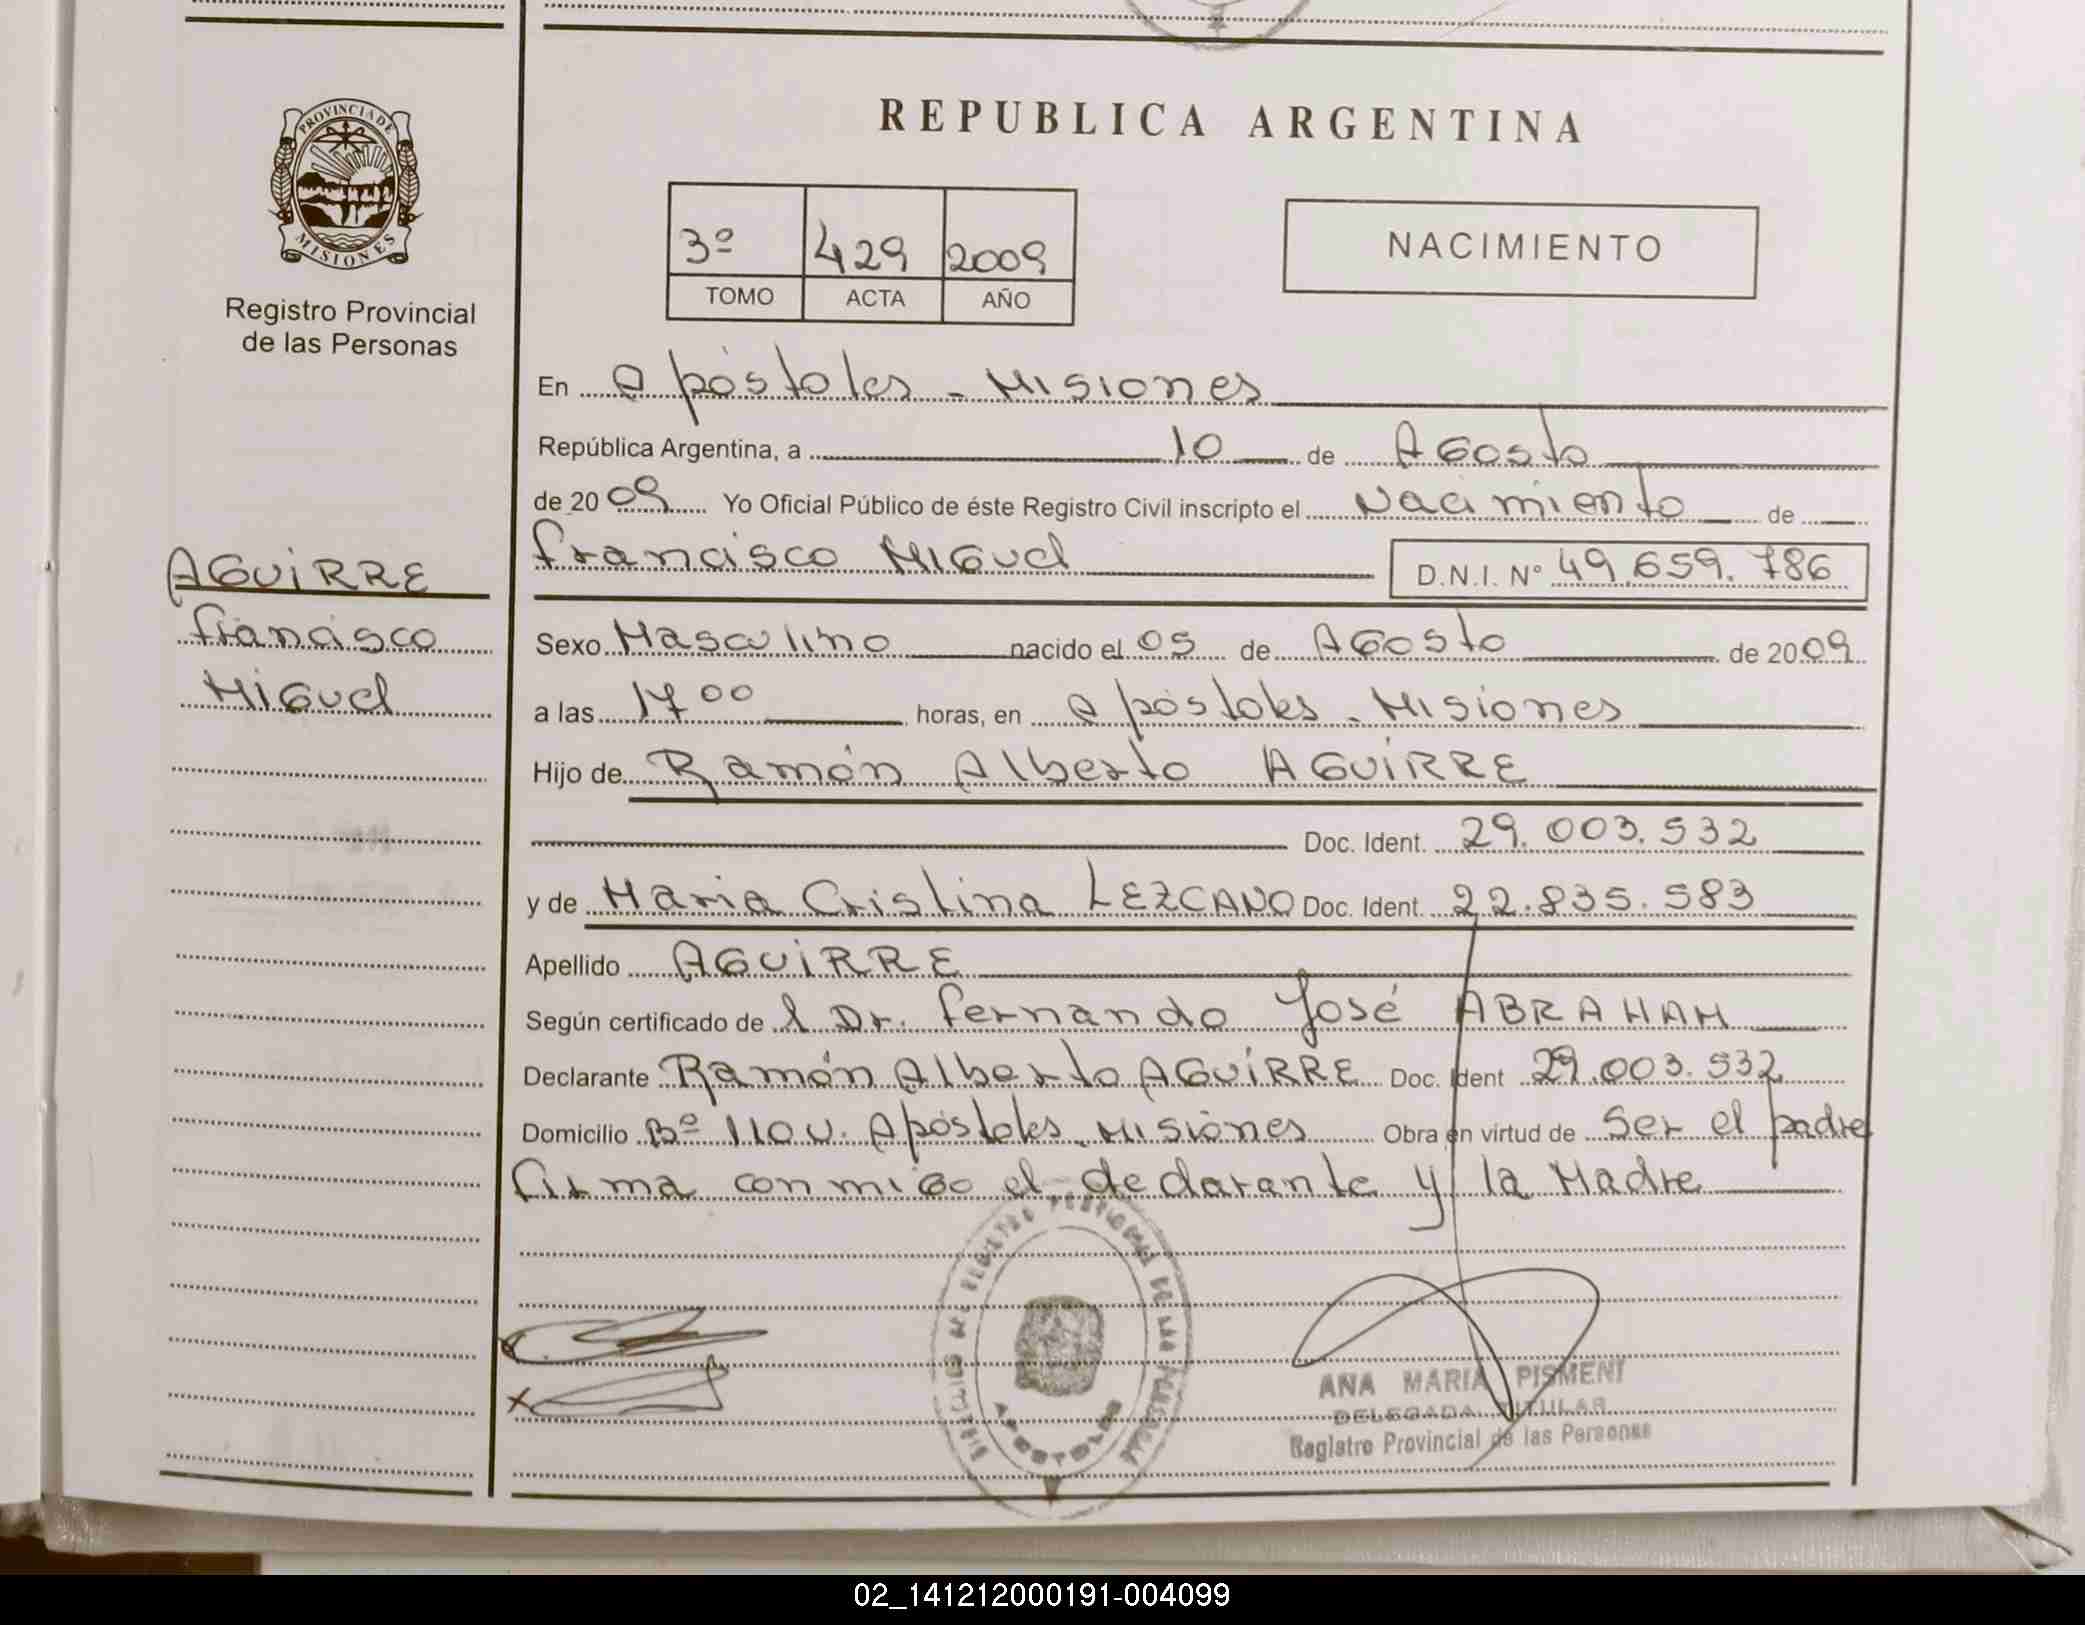 PROVINCIA DE
MISIONES
Registro Provincial
de las Personas
AGUIRRE
Francisco
Miguel
REPUBLICA ARGENTINA
3º 429 2009
TOMO ACTA AÑO
NACIMIENTO
En Apóstoles - Misiones
República Argentina, a 10 de Agosto
de 2009 Yo Oficial Público de éste Registro Civil inscripto el Nacimiento de
Francisco Miguel D.N.I. Nº 49.659.786
Sexo Masculino nacido el 05 de Agosto de 2009
a las 17 00 horas, en Apóstoles - Misiones
Hijo de Ramón Alberto AGUIRRE
Doc. Ident. 29.003.532
y de Maria Cristina LEZCANO Doc. Ident. 22.835.583
Apellido AGUIRRE
Según certificado de l Dr. Fernando José ABRAHAM
Declarante Ramón Alberto AGUIRRE Doc. Ident 29.003.532
Domicilio Bº 110 V. Apóstoles - Misiones Obra en virtud de Ser el padre
firma conmigo el declarante y la Madre
APOSTOLES
ANA MARIA PISMENI
DELEGADA TITULAR
Registro Provincial de las Personas
02_141212000191-004099